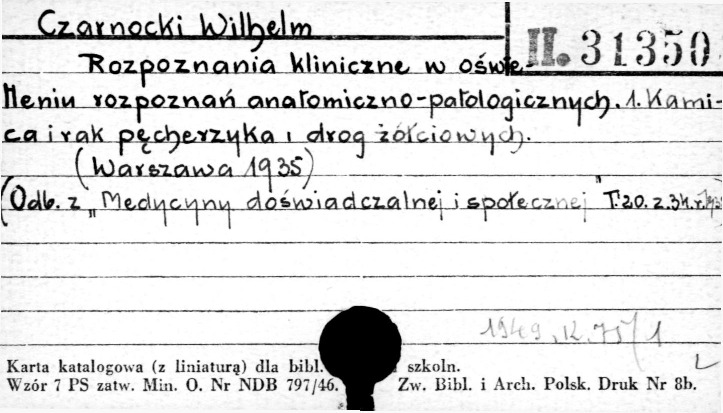 Czarnocki Wilhelm
II. 31350
Rozpoznania kliniczne w oświe-
tleniu rozpoznań anatomiczno-patologicznych. 1. Kami-
ca i rak pęcherzyka i dróg żółciowych.
(Warszawa 1935)
(Odb. z „Medycyny doświadczalnej i społecznej" T. 20. z. 3/4. r.
1949. K. 75/1
Karta katalogowa (z liniaturą) dla bibl. szkoln.
Wzór 7 PS zatw. Min. O. Nr NDB 797/46. Zw. Bibl. i Arch. Polsk. Druk Nr 8b.